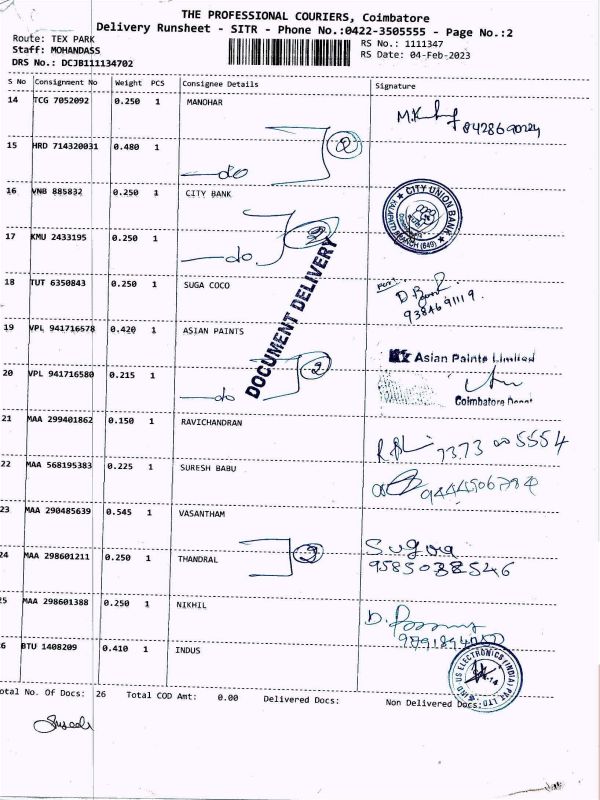 THE PROFESSIONAL COURIERS, Coimbatore
Delivery Runsheet - SITR - Phone No.:0422-3505555 - Page No.:2
Route: TEX PARK
RS No.: 1111347
Staff: MOHANDASS
RS Date: 04-Feb-2023
DRS No.: DCJB111134702
S No Consignment No Weight PCS Consignee Details Signature
14 TCG 7052092 0.250 1 MANOHAR
8428690224
15 HRD 714320031 0.480 1 do 2
16 VNB 885832 0.250 1 CITY BANK
CITY UNION BANK
17 KMU 2433195 0.250 1 do 2
18 TUT 6350843 0.250 1 SUGA COCO
9384691119.
DOCUMENT DELIVERY
19 VPL 941716578 0.420 1 ASIAN PAINTS
Asian Paints Limited
20 VPL 941716580 0.215 1 do 2
Coimbatore Depot
21 MAA 299401862 0.150 1 RAVICHANDRAN
7373 00 5554
22 MAA 568195383 0.225 1 SURESH BABU
23 MAA 290485639 0.545 1 VASANTHAM
Suguna
24 MAA 298601211 0.250 1 THANDRAL
25 MAA 298601388 0.250 1 NIKHIL
26 BTU 1408209 0.410 1 INDUS
INDUS ELECTRONICS (INDIA) PVT LTD
Total No. Of Docs: 26 Total COD Amt: 0.00 Delivered Docs: Non Delivered Docs: